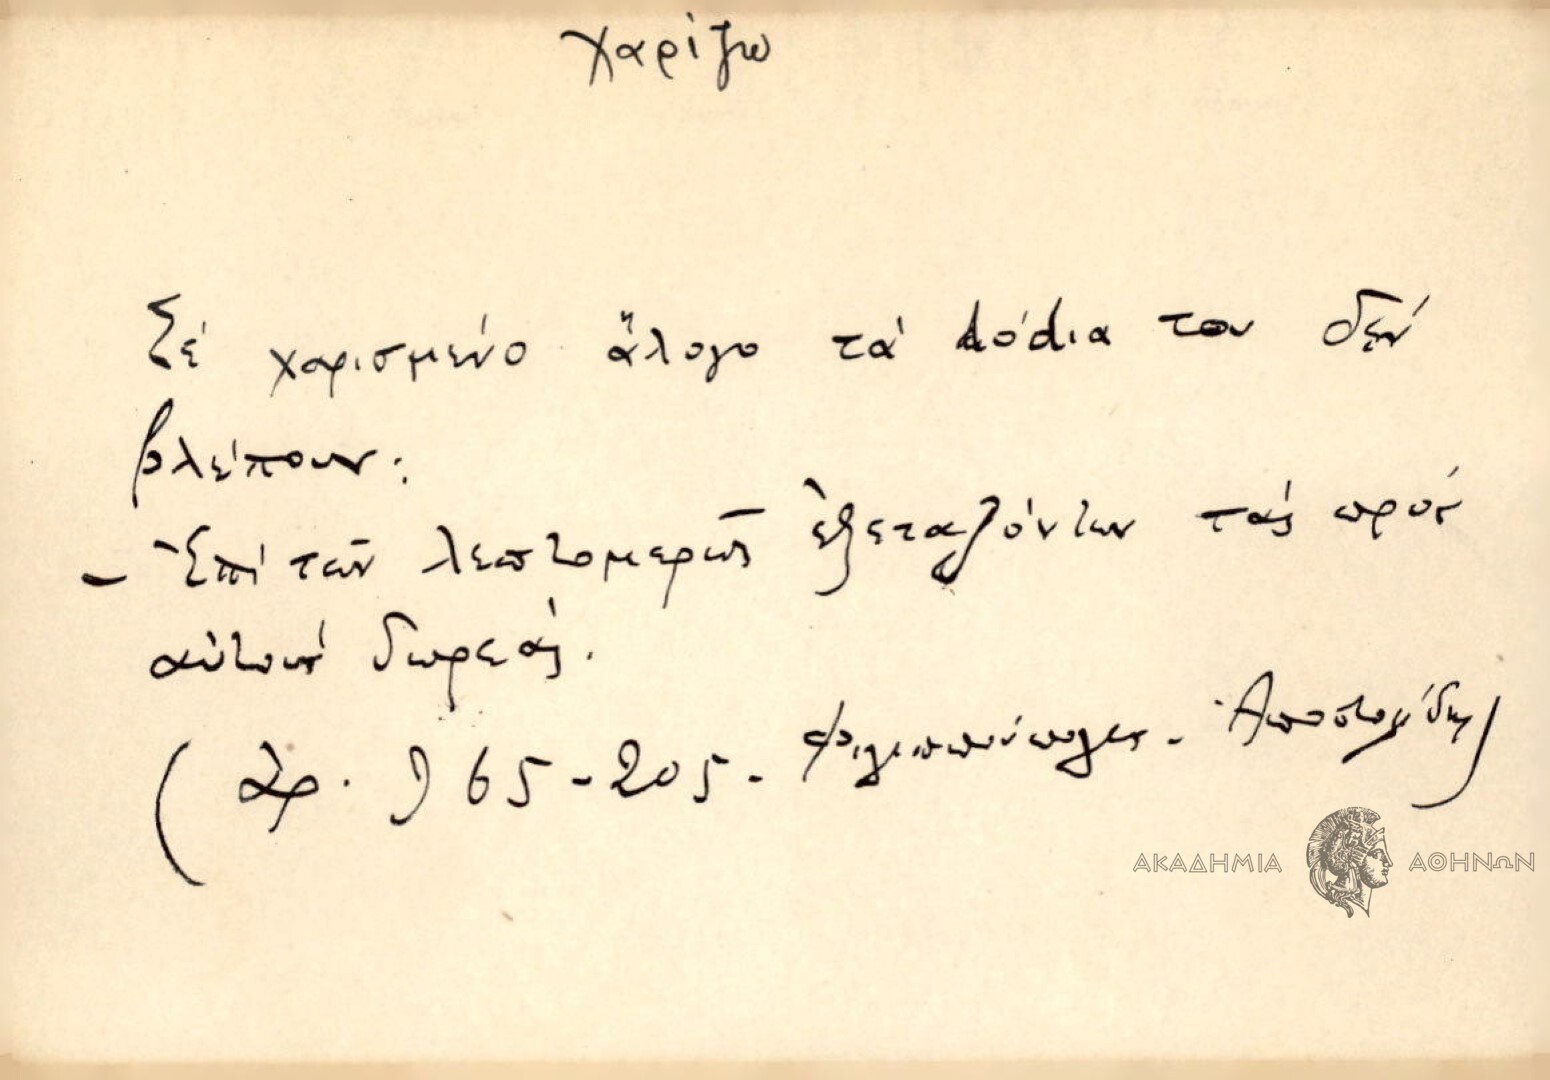 χαρίζω
Σέ χαρισμένο ἄλογο τά dόdια του δέν
βλέπουν.
- Ἐπί τῶν λεπτομερῶς ἐξεταζόντων τάς πρός
αὐτούς δωρεάς.
(Ἀρ. 965-205. Φιλιππούπολις. Ἀποστολίδης)
ΑΚΑΔΗΜΙΑ ΑΘΗΝΩΝ